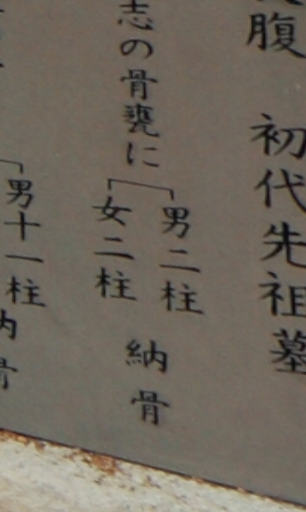 腹 初代先祖墓
志の骨甕に 男二柱 女二柱 納骨
男十一柱 納骨